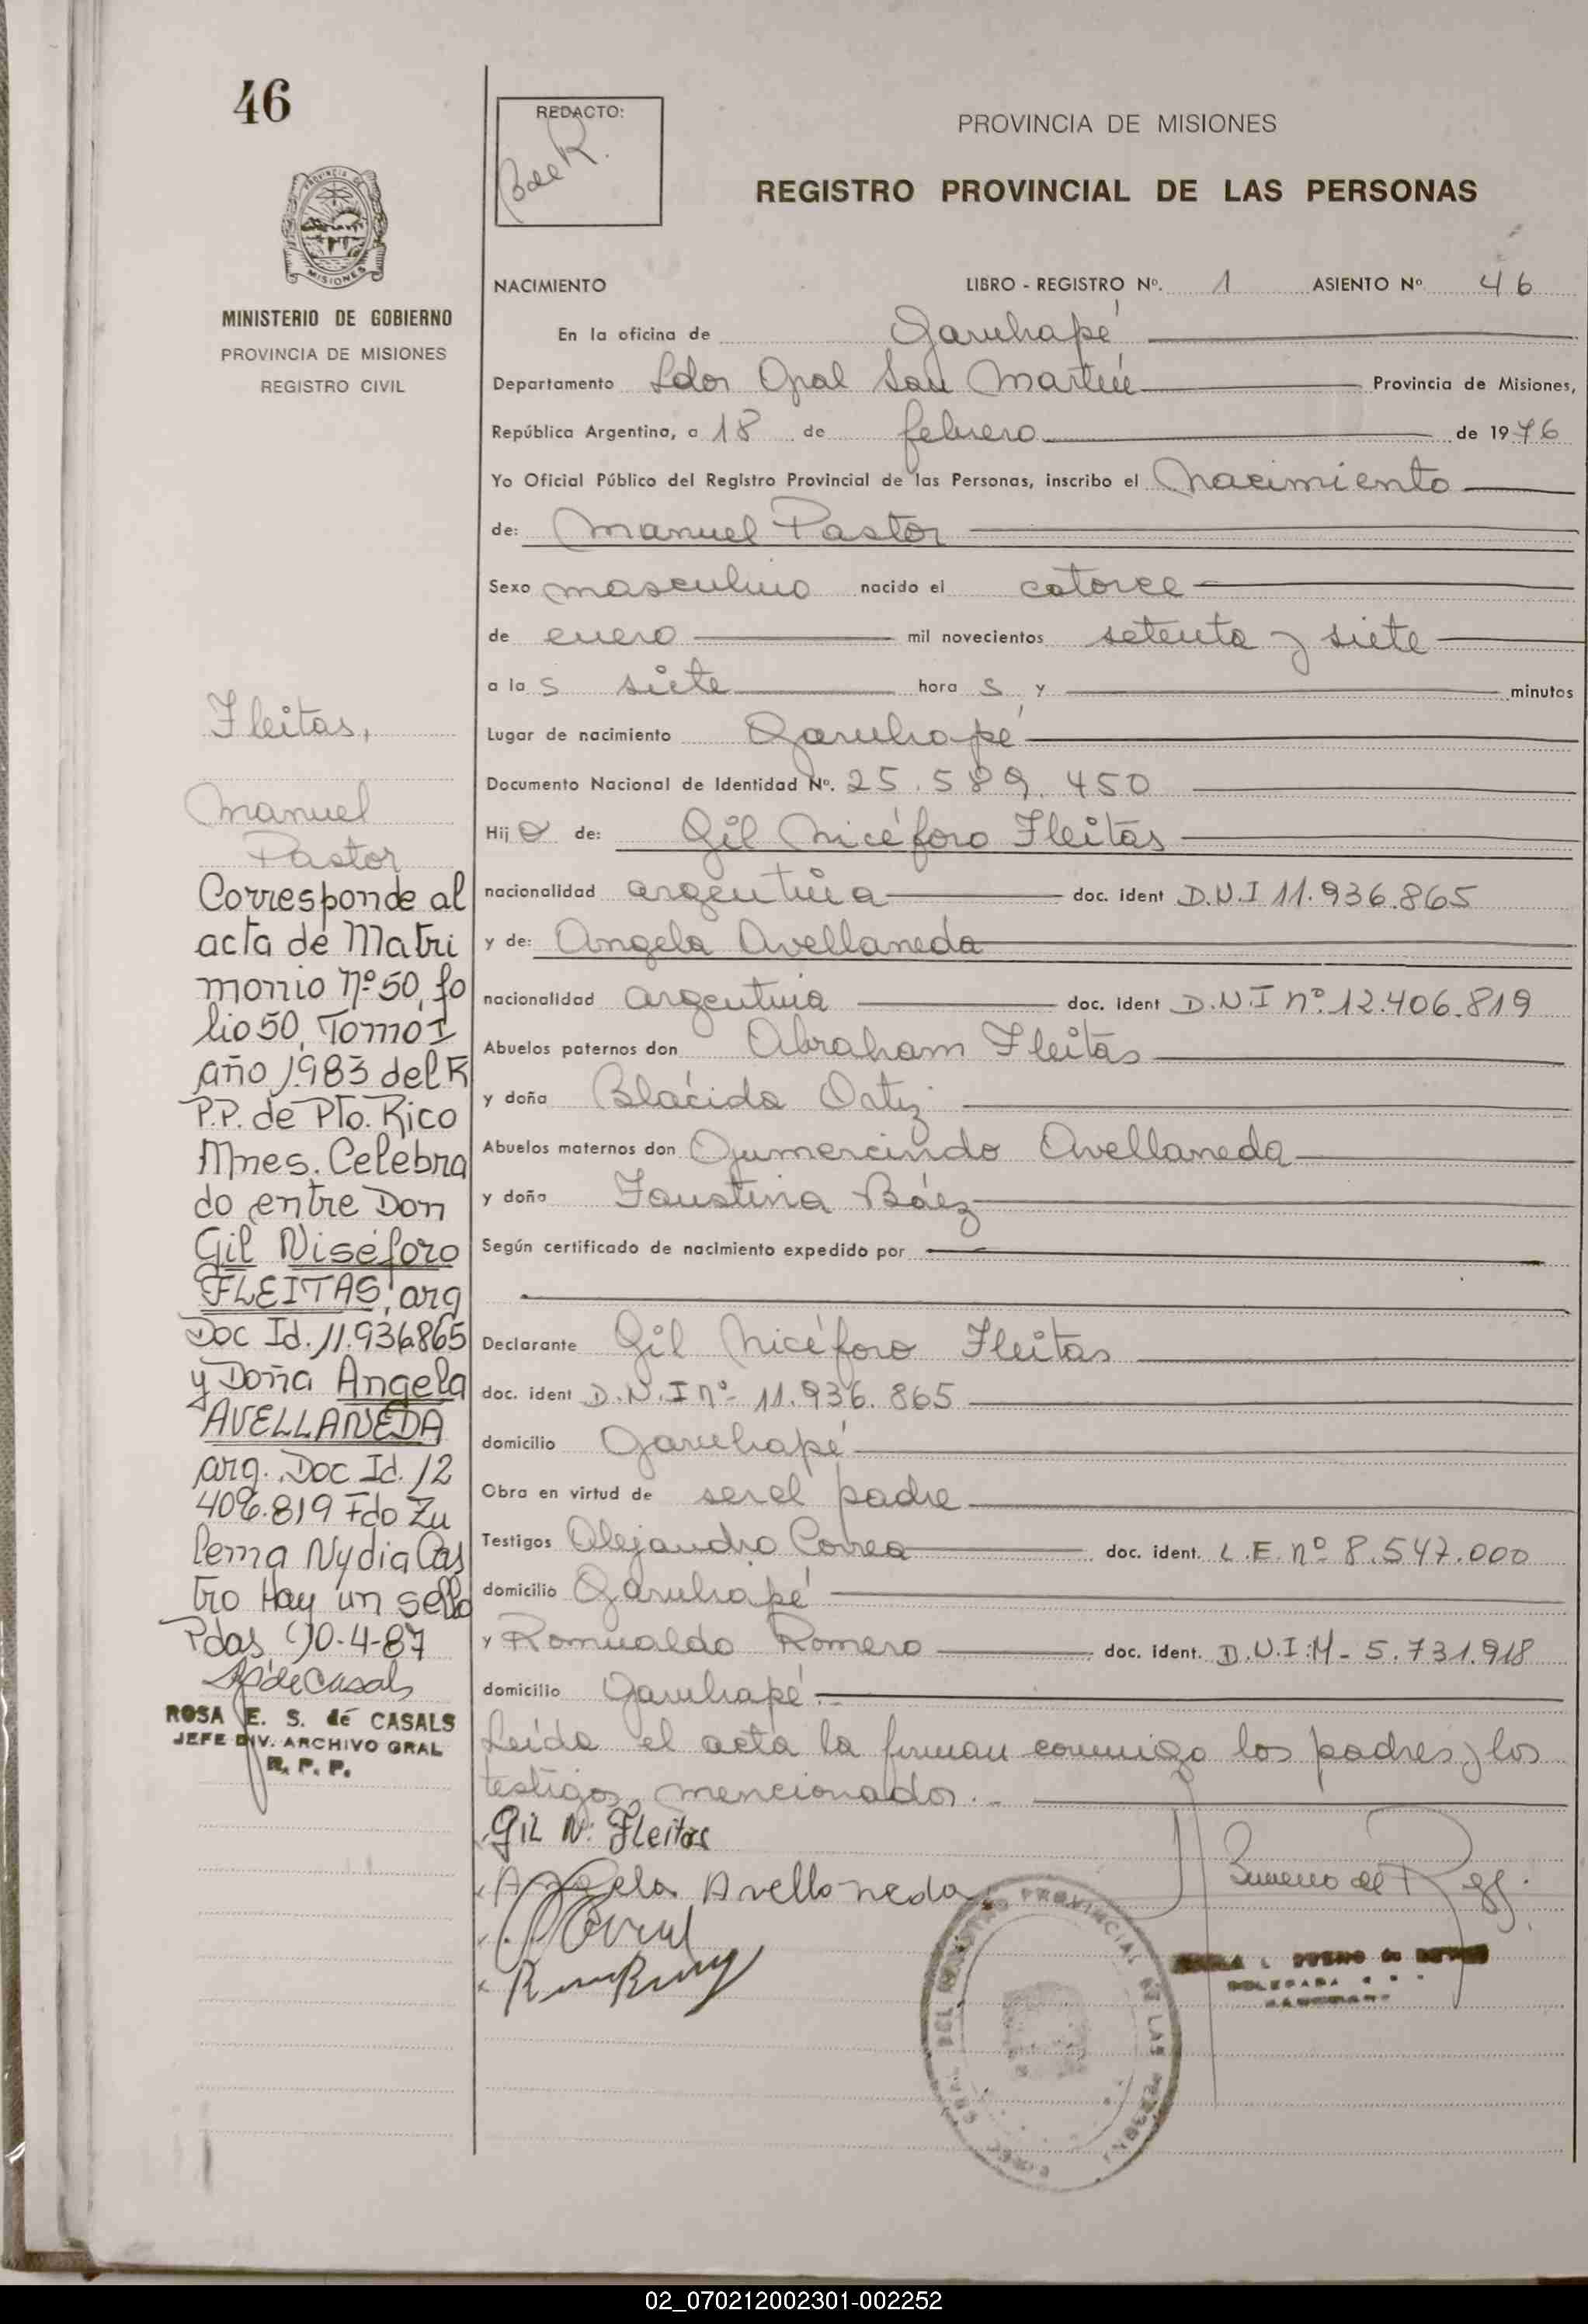 46
REDACTO:
B de R.
PROVINCIA DE MISIONES
REGISTRO PROVINCIAL DE LAS PERSONAS
PROVINCIA DE
MISIONES
MINISTERIO DE GOBIERNO
PROVINCIA DE MISIONES
REGISTRO CIVIL
NACIMIENTO LIBRO - REGISTRO Nº. 1 ASIENTO Nº 46
En la oficina de Garuhapé
Departamento Ldor Gral San Martín Provincia de Misiones,
República Argentina, a 18 de febrero de 1976
Yo Oficial Público del Registro Provincial de las Personas, inscribo el nacimiento
de: Manuel Pastor
Sexo masculino nacido el catorce
de enero mil novecientos setenta y siete
a las siete horas y minutos
Lugar de nacimiento Garuhapé
Documento Nacional de Identidad Nº. 25.589.450
Hijo de: Gil Nicéforo Fleitas
nacionalidad argentina doc. ident D.N.I 11.936.865
y de: Angela Avellaneda
nacionalidad argentina doc. ident D.N.I nº. 12.406.819
Abuelos paternos don Abraham Fleitas
y doña Blácida Ortiz
Abuelos maternos don Gumercindo Avellaneda
y doña Faustina Báez
Según certificado de nacimiento expedido por
Declarante Gil Nicéforo Fleitas
doc. ident D.N.I nº- 11.936.865
domicilio Garuhapé
Obra en virtud de ser el padre
Testigos Alejandro Correa doc. ident. L.E. nº 8.547.000
domicilio Garuhapé
y Romualdo Romero doc. ident. D.N.I:M- 5.731.918
domicilio Garuhapé.-
Leída el acta la firman conmigo los padres y los
testigos mencionados.-
Gil N. Fleitas
Angela Avellaneda
Fleitas,
Manuel
Pastor
Corresponde al
acta de Matri
monio Nº 50, fo
lio 50, Tomo I
año 1983 del R
P.P. de Pto. Rico
Mnes. Celebra
do entre Don
Gil Niséforo
FLEITAS, arg
Doc Id. 11.936865
y Doña Angela
AVELLANEDA
arg. Doc Id. 12
406.819 Fdo Zu
lema Nydia Cas
tro Hay un sello
Pdas 90-4-87
ROSA E. S. de CASALS
JEFE DIV. ARCHIVO GRAL
R. P. P.
PROVINCIAL DE LAS
02_070212002301-002252